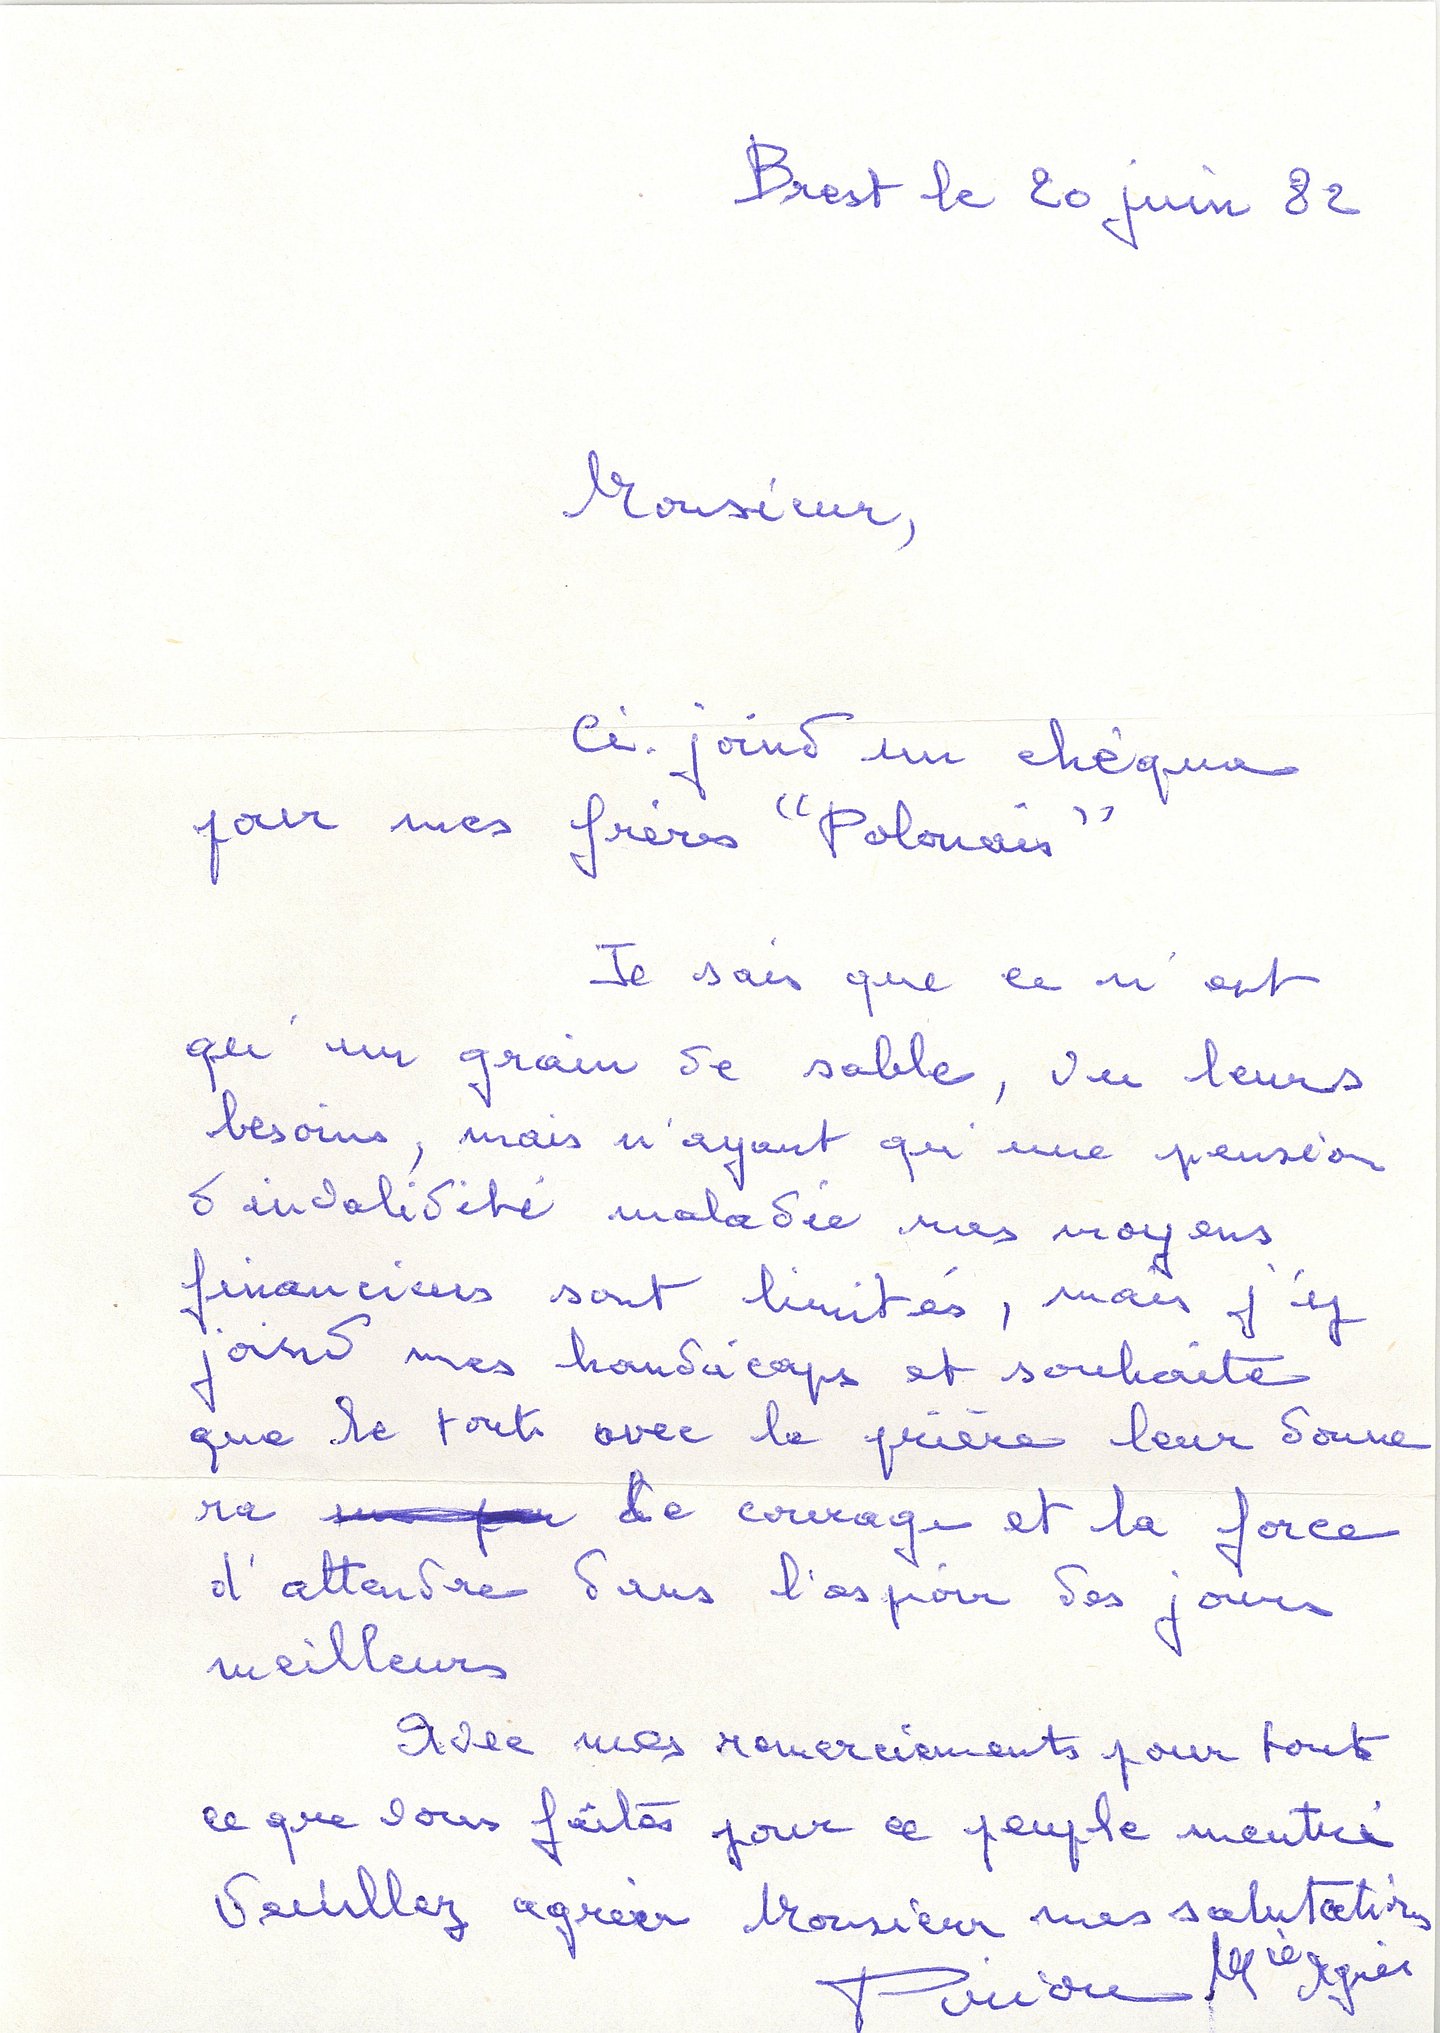 Brest le 20 juin 82
Monsieur,
Ci-joind un chéque
pour mes frères "Polonais"
Je sais que ce n'est
qu'un grain de sable, vu leurs
besoins, mais n'ayant qu'une pension
d'invalidité maladie mes moyens
financiers sont limités, mais j'y
joind mes handicaps et souhaite
que le tout avec la prière leur donne
ra le courage et la force
d'attendre dans l'espoir des jours
meilleurs
Avec mes remerciements pour tout
ce que vous faites pour ce peuple meutri
Veuillez agréer Monsieur mes salutations
Mie Agnès